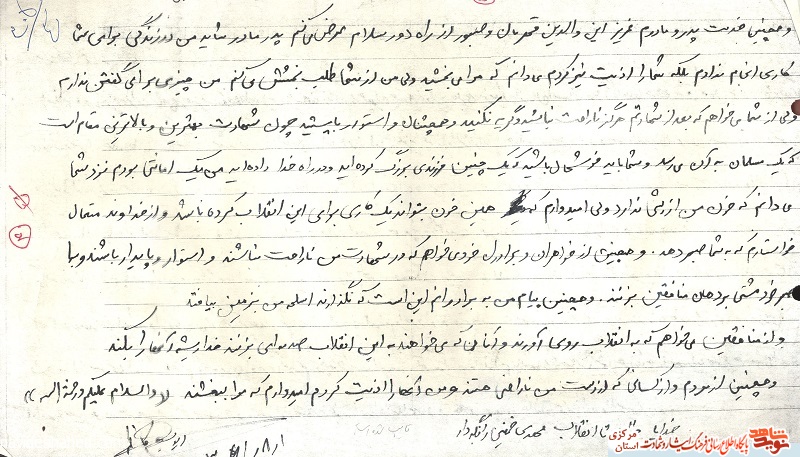 و همچنین خدمت پدر و مادرم عزیز این والدین قهرمان و صبور از راه دور سلام عرض می‌کنم پدر مادر شاید من در زندگی برای شما
کاری انجام ندادم بلکه شما را اذیت نیز کردم می دانم که مرا می بخشید ولی من از شما طلب بخشش می‌کنم من چیزی برای گفتن ندارم
ولی از شما می‌خواهم که بعد از شهادتم هرگز ناراحت نباشید و گریه نکنید و همچنان و استوار باشید چون شهادت بهترین و بالاترین مقام است
که یک مسلمان به آن می رسد و شما باید خوشحال باشید که یک چنین فرزندی بزرگ کرده اید و در راه خدا داده اید من یک امانتی بودم نزد شما
می دانم که خون من ارزشی ندارد ولی امیدوارم که همین خون بتواند یک کاری برای این انقلاب کرده باشد و از خداوند متعال
خواستارم که به شما صبر دهد. و همچنین از خواهران و برادران خود می‌خواهم که در شهادت من ناراحت نباشند و استوار و پایدار باشند و با
صبر خود مشتی بر دهان منافقین بزنند. و همچنین پیام من به برادرانم این است که نگذارند اسلحه من بزمین بیافتد
و از منافقین می‌خواهم که به انقلاب روی آورند و آنان که می خواهند به این انقلاب صدمه ای بزنند خدا ریشه آنها را بکند
و همچنین از مردم و از کسانی که از دست من ناراضی هستند و من آنها را اذیت کردم امیدوارم که مرا ببخشند «والسلام علیکم و رحمة الله»
خدایا تا انقلاب مهدی خمینی را نگه دار
نوید شاهد
استان مرکزی
پایگاه اطلاع رسانی فرهنگ ایثار و شهادت